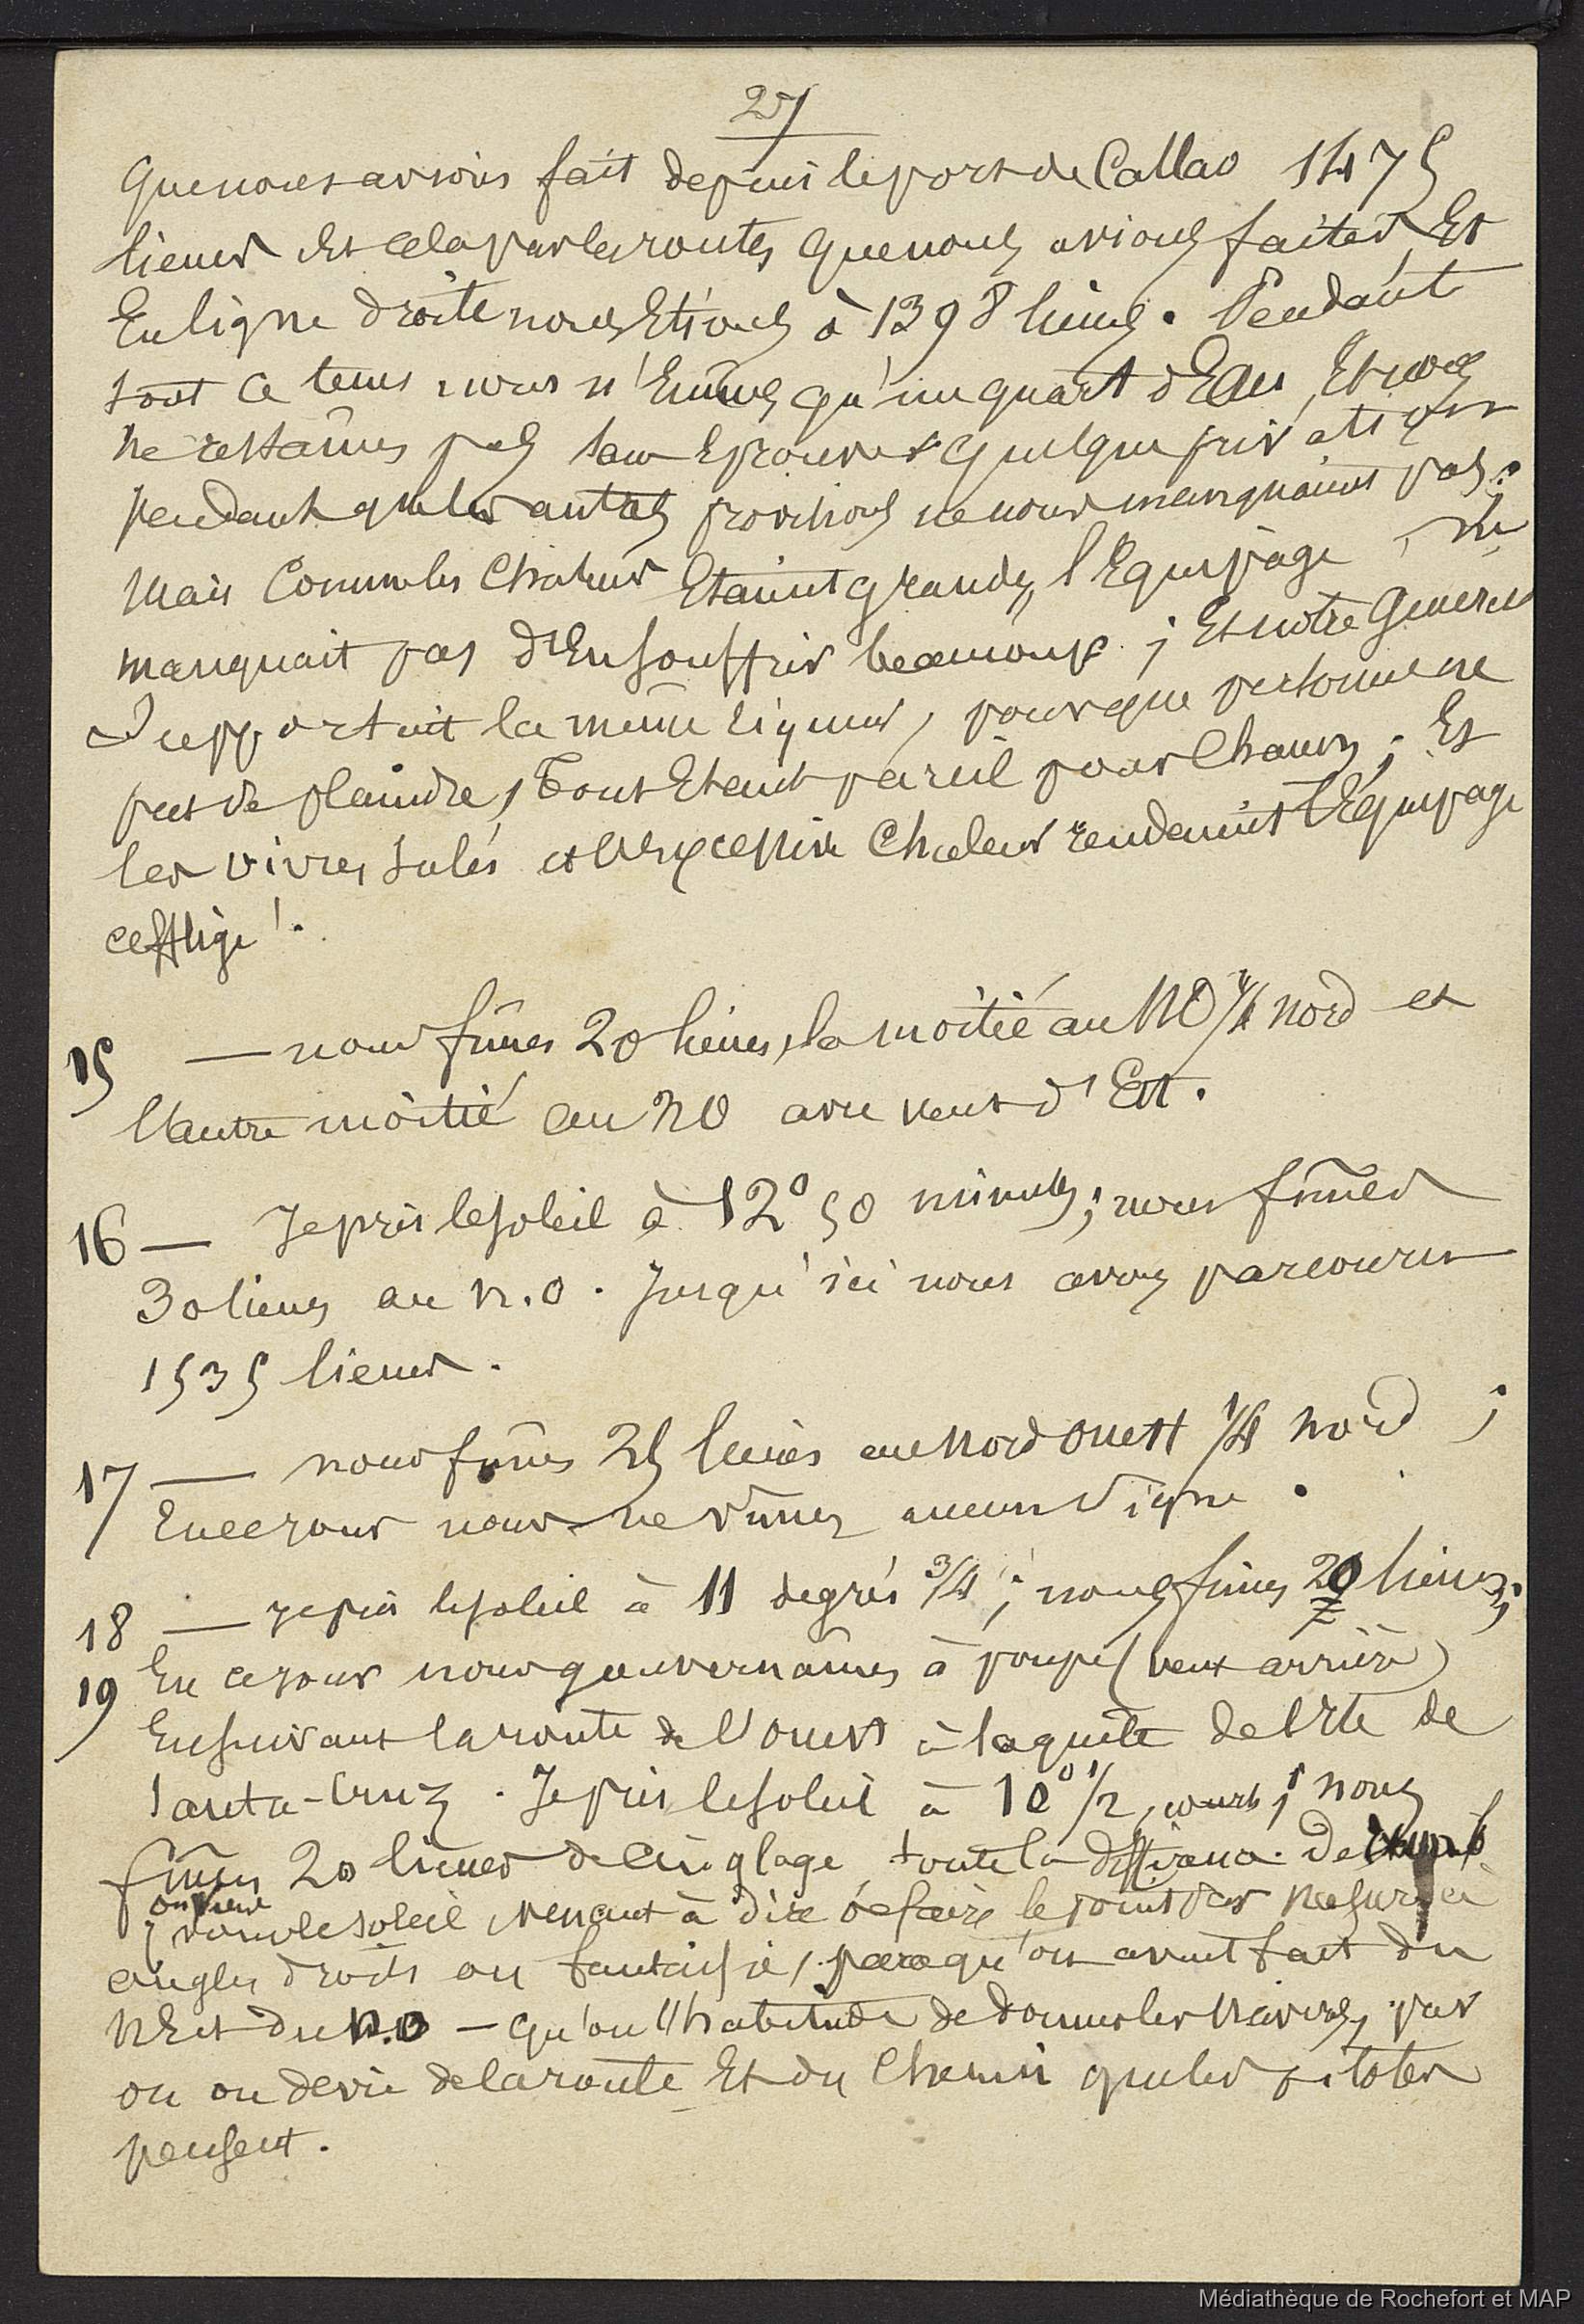 27
que nous avions fait depuis le port de Callao 1475
lieues et cela par les routes que nous avions faites, Et
En ligne droite nous Etions à 1398 lieues. Pendant
tout ce tems nous n'Eumes qu'un quart d'Eau, Et nous
ne restâmes pas sans Eprouver quelque privation
pendant que les autres provisions ne nous manquaient pas;
Mais Comme les Chaleurs Etaient grandes, l'Equipage ne
manquait pas d'En souffrir beaucoup; Et notre General
Supportait la même rigueur, pour que personne ne
put se plaindre, Tout Etant pareil pour Chacun; Et
les vivres salés et l'excessive Chaleur rendaient l'Equipage
affligé.
15 — nous fîmes 20 lieues, la moitié au NO 1/4 Nord et
l'autre moitié au NO avec vent d'Est.
16 — Je pris le soleil à 12° 50 minutes; nous fîmes
30 lieues au N.O. Jusqu'ici nous avons parcouru
1535 lieues.
17 — nous fîmes 25 lieues au Nord Ouest 1/4 Nord;
En ce jour nous ne vîmes aucun Signe.
18 — Je pris le soleil à 11 degrés 3/4; nous fîmes 20 lieues;
19 En ce jour nous gouvernâmes à poupe (vent arrière)
En suivant la route de l'Ouest à la quête de l'Ile de
Santa-Cruz. Je pris le soleil à 10° 1/2, courts; nous
fîmes 20 lieues de cinglage, toute la différence de
on vient
le soleil, venant à dire de faire le point par mesure à
angles droits ou fantaisie, parce qu'on avait fait du
NE et du N.O — qu'on l'habitude de donner les Navires, par
ou on devie de la route Et du Chemin que les pilotes
pensent.
Médiathèque de Rochefort et MAP